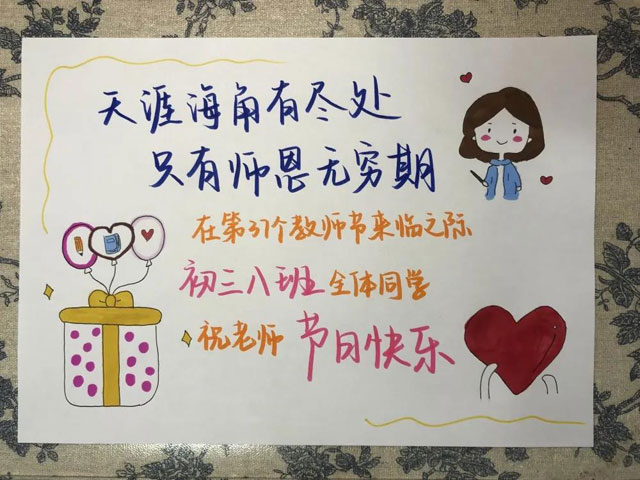 天涯海角有尽处
只有师恩无穷期
在第37个教师节来临之际
初三八班全体同学
祝老师 节日快乐